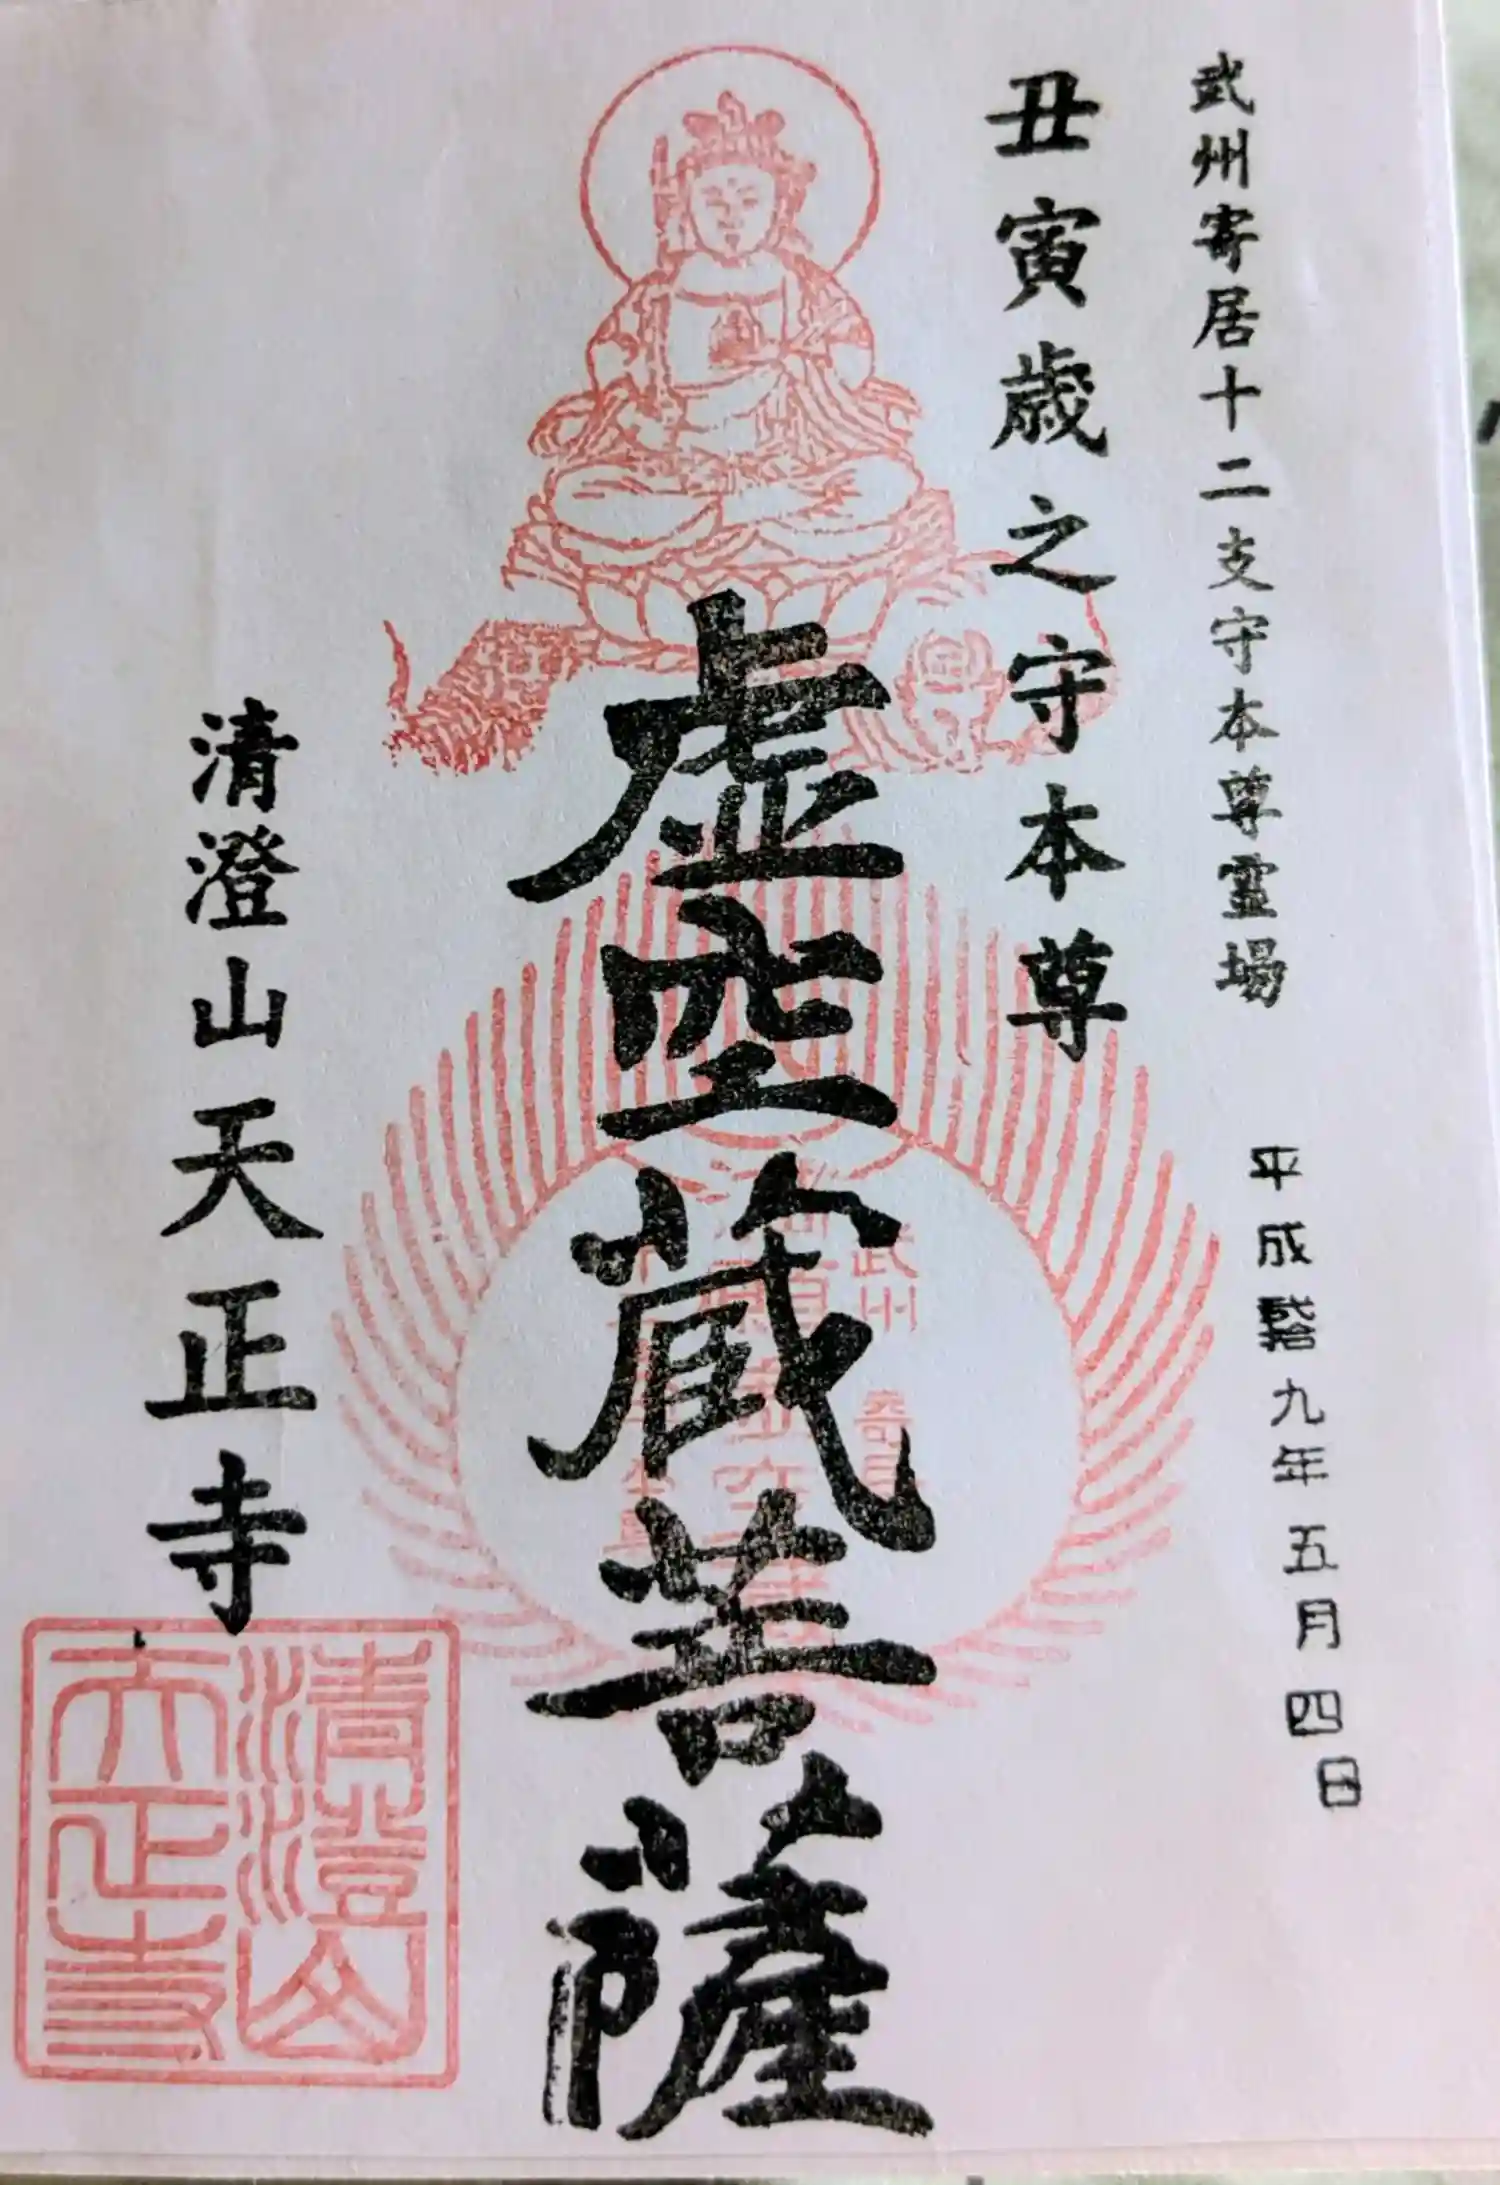 武州寄居十二支守本尊霊場
平成拾九年五月四日
丑寅歳之守本尊
虚空蔵菩薩
清澄山天正寺
武州
寄居
清澄山
天正寺